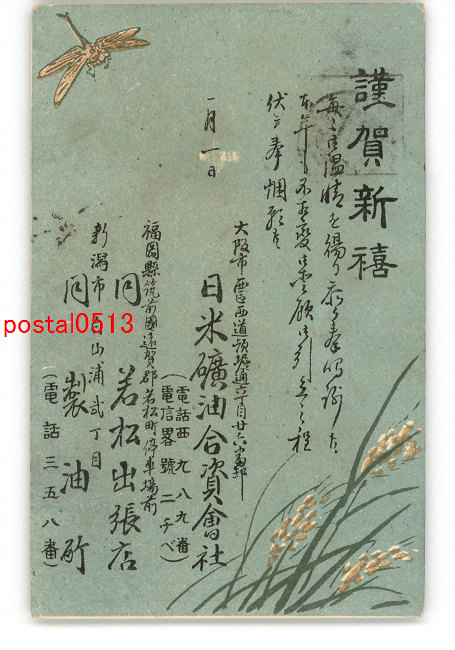 謹賀新禧
本年も不相変御愛顧御引立之程
伏而奉悃願候
一月一日
大阪市西區西道頓堀通六丁目廿六番邸
日米礦油合資會社
(電話西九八九番)
(電信畧號ニチベ)
福岡縣筑前國遠賀郡若松町停車場前
同 若松出張店
新潟市 山浦貳丁目
同 製油所
(電話三五八番)
postal0513